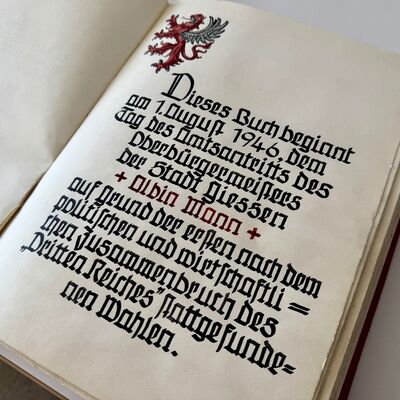 Dieses Buch beginnt
am 1. August 1946, dem
Tag des Amtsantritts des
Oberbürgermeisters
der Stadt Giessen
+ Albin Mann +
auf Grund der ersten nach dem
politischen und wirtschaftli=
chen Zusammenbruch des
„Dritten Reiches" stattgefunde=
nen Wahlen.